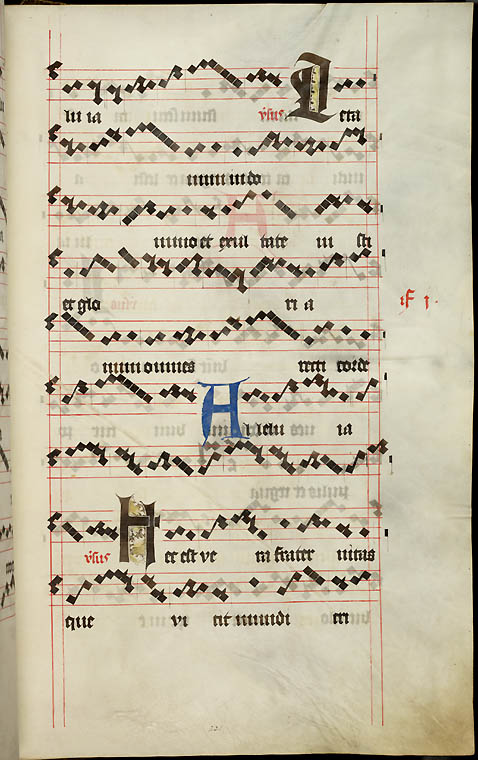 lu ia ṽsus L eta
mini in do
mino et exul tate iu sti
et glo ri a
mini omnes recti corde
A l lelu ia
ṽsus H ec est ve ra frater nitas
que vi cit mundi cri